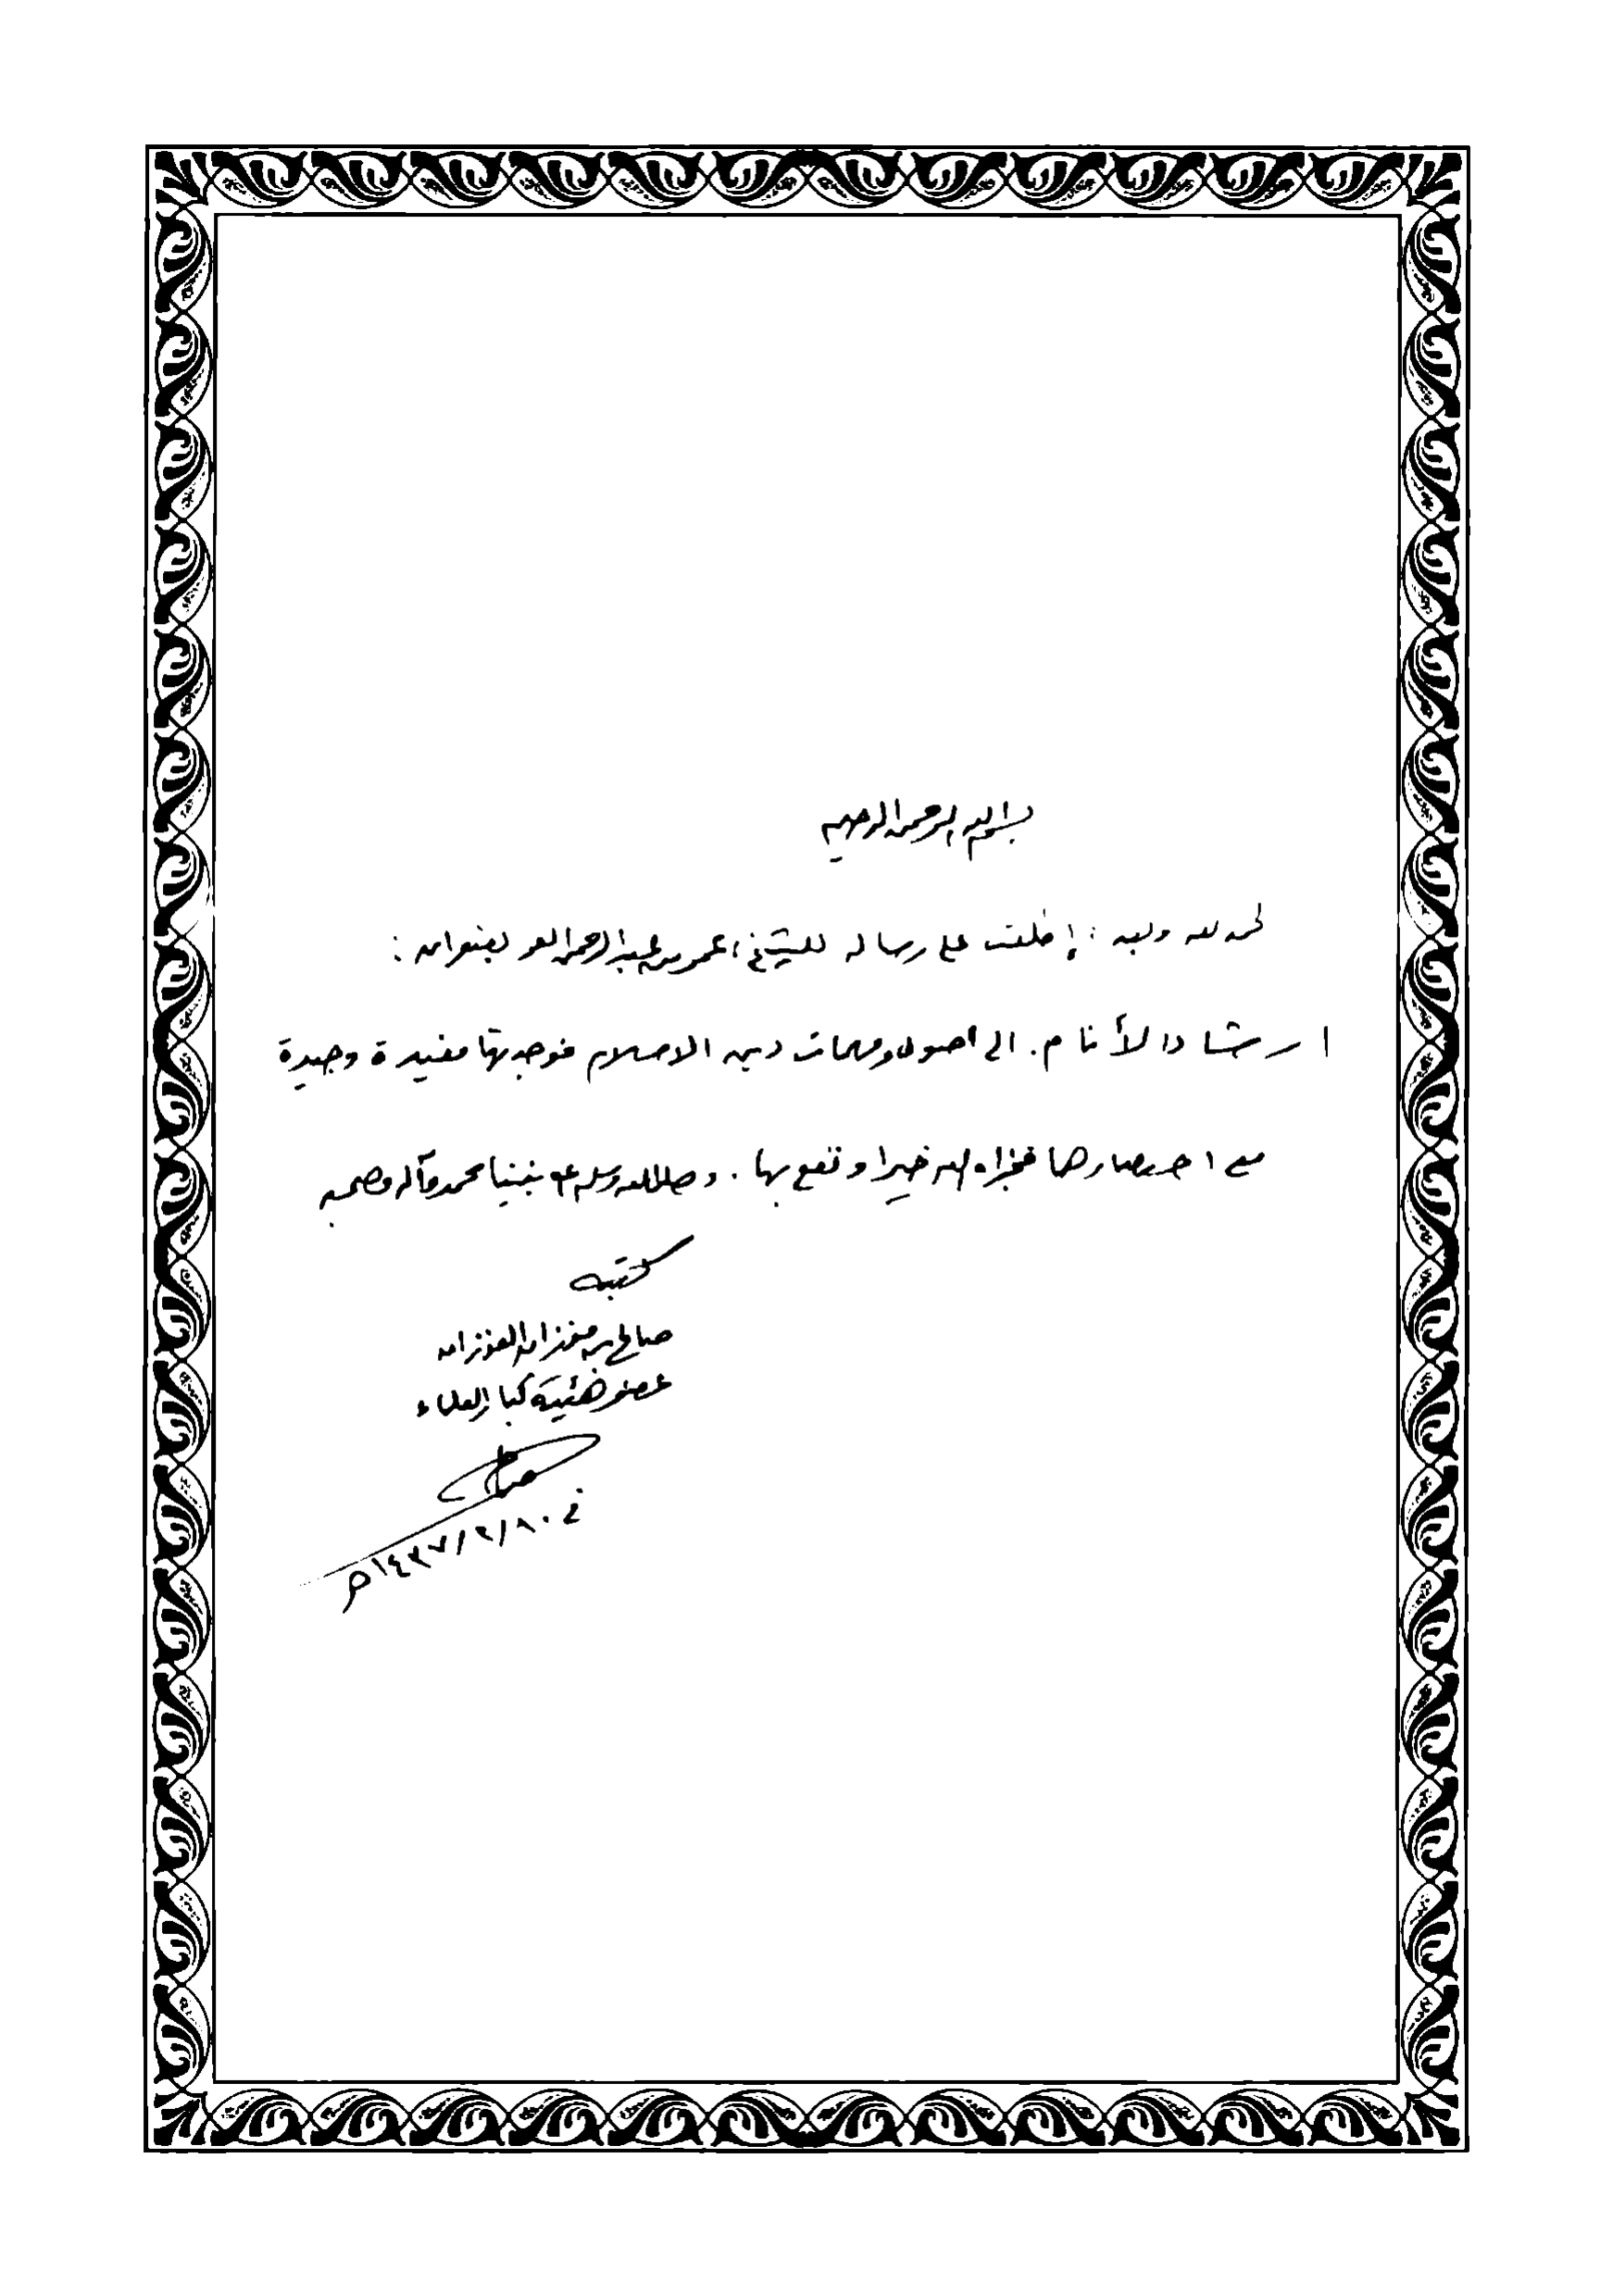 بسم الله الرحمن الرحيم
الحمد لله وبعد: إطلعت على رسالة للشيخ: عمر بن عبد الرحمن العمر بعنوان:
ارشاد الأنام. الى أصول ومهمات دين الاسلام فوجدتها مفيدة وجيدة
مع اختصارها فجزاه الله خيرا ونفع بها. وصلى الله وسلم على نبينا محمد وآله وصحبه
كتبه
صالح بن فوزان الفوزان
عضو هيئة كبار العلماء
في ٠٨/٢/١٤٣٧هـ